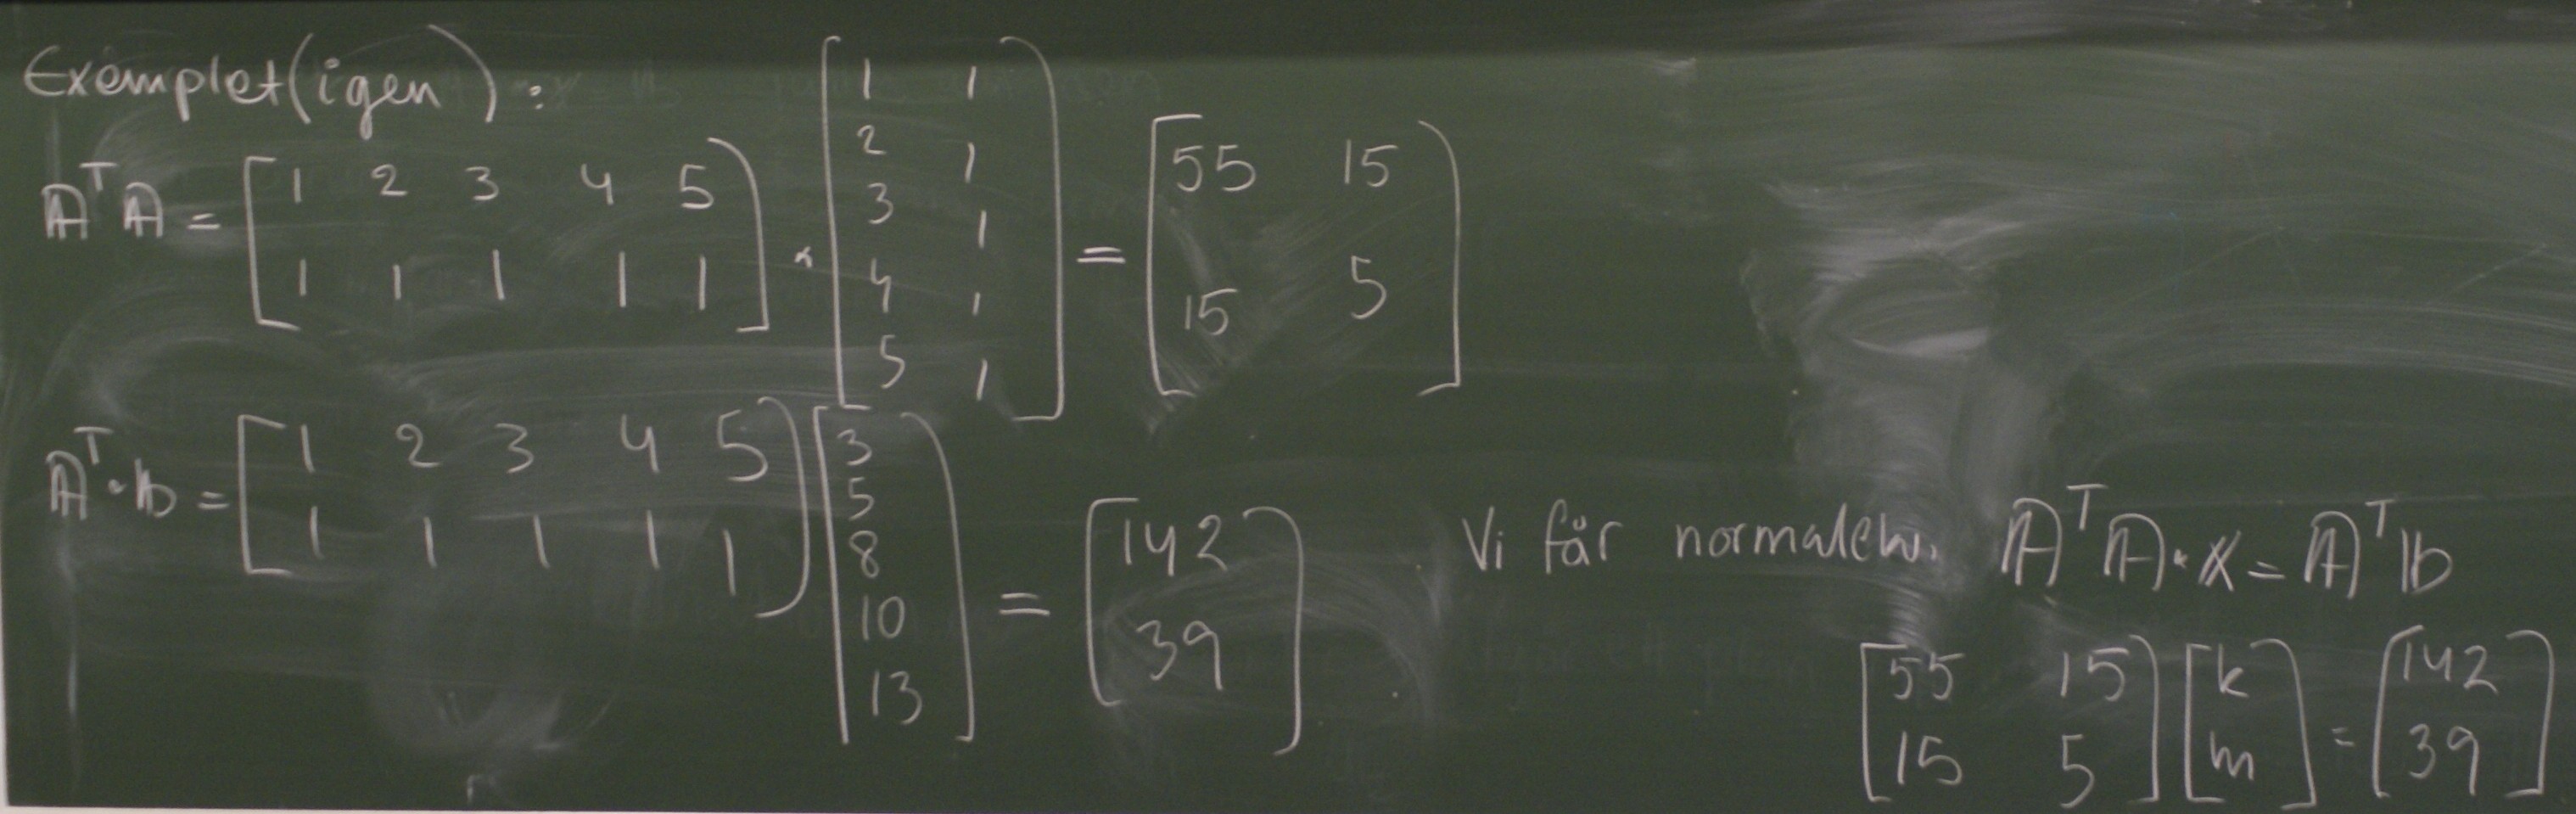 Exemplet (igen):
AᵀA = [1 2 3 4 5
1 1 1 1 1] · [1 1
2 1
3 1
4 1
5 1] = [55 15
15 5]
Aᵀ·b = [1 2 3 4 5
1 1 1 1 1] [3
5
8
10
13] = [142
39]
Vi får normalekv. AᵀA·x = Aᵀb
[55 15
15 5] [k
m] = [142
39]